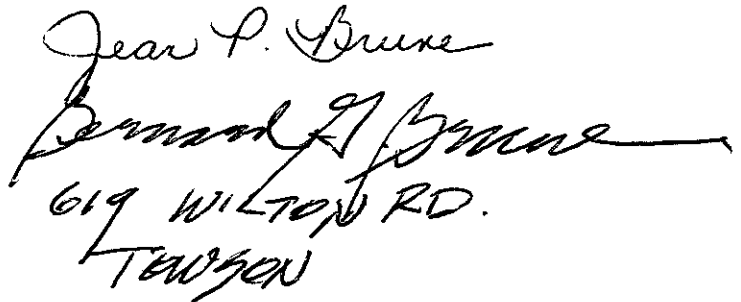 Jean P. Brune
Bernard G. Brune
619 WILTON RD.
TOWSON